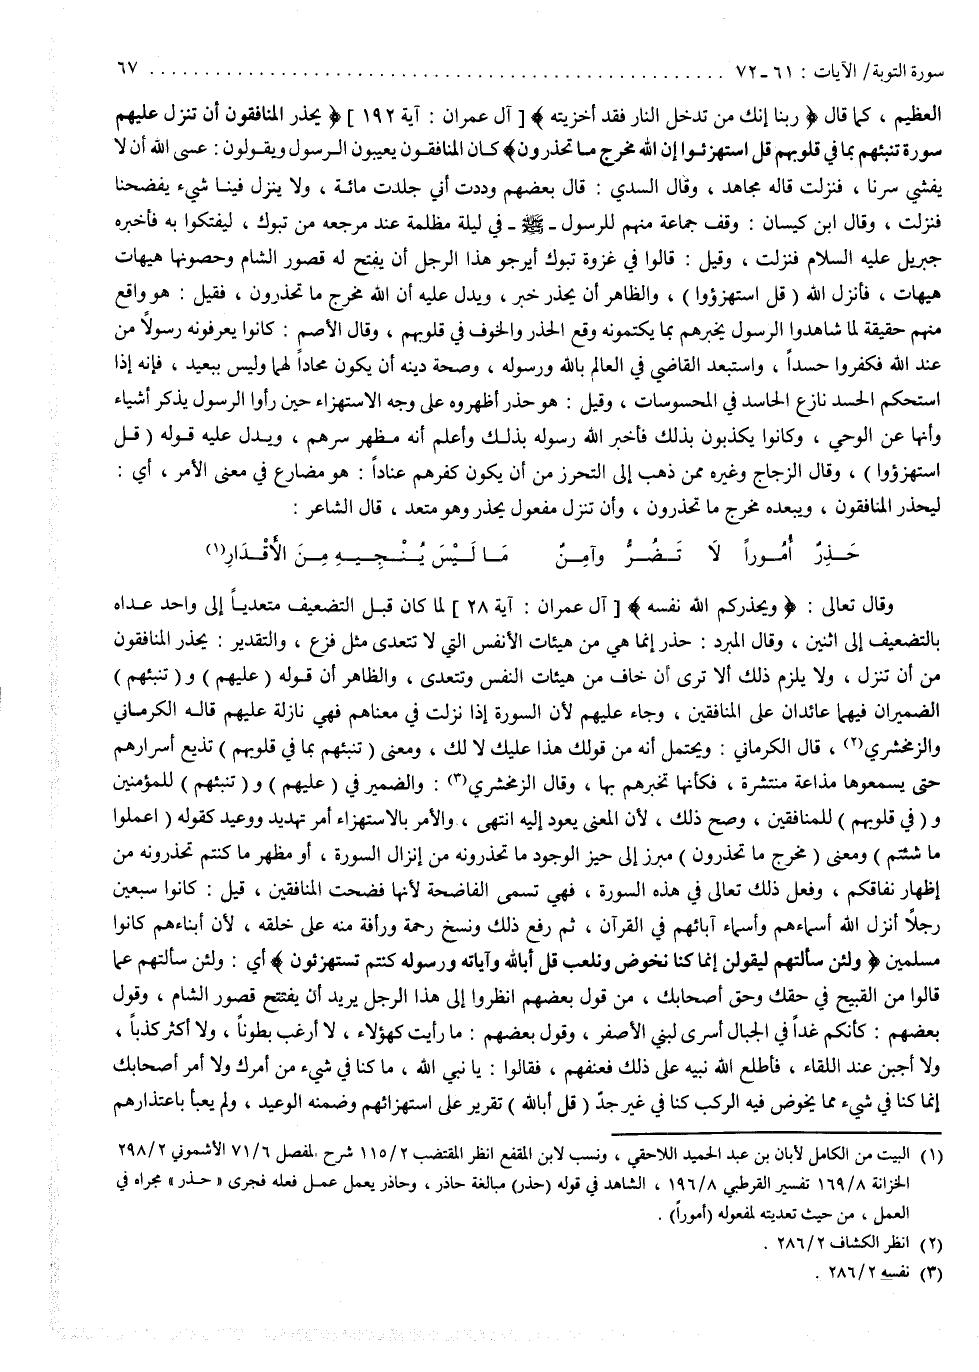 سورة التوبة/ الآيات : ٦١ـ٧٢ .................................................. ٦٧
العظيم ، كما قال ﴿ ربنا إنك من تدخل النار فقد أخزيته ﴾ [ آل عمران : آية ١٩٢ ] ﴿ يحذر المنافقون أن تنزل عليهم
سورة تنبئهم بما في قلوبهم قل استهزئوا إن الله مخرج ما تحذرون﴾ كان المنافقون يعيبون الرسول ويقولون : عسى الله أن لا
يفشي سرنا ، فنزلت قاله مجاهد ، وقال السدي : قال بعضهم وددت أني جلدت مائة ، ولا ينزل فينا شيء يفضحنا
فنزلت ، وقال ابن كيسان : وقف جماعة منهم للرسول ـ ﷺ ـ في ليلة مظلمة عند مرجعه من تبوك ، ليفتكوا به فأخبره
جبريل عليه السلام فنزلت ، وقيل : قالوا في غزوة تبوك أيرجو هذا الرجل أن يفتح له قصور الشام وحصونها هيهات
هيهات ، فأنزل الله ( قل استهزؤوا ) ، والظاهر أن يحذر خبر ، ويدل عليه أن الله مخرج ما تحذرون ، فقيل : هو واقع
منهم حقيقة لما شاهدوا الرسول يخبرهم بما يكتمونه وقع الحذر والخوف في قلوبهم ، وقال الأصم : كانوا يعرفونه رسولاً من
عند الله فكفروا حسداً ، واستبعد القاضي في العالم بالله ورسوله ، وصحة دينه أن يكون محاداً لهما وليس ببعيد ، فإنه إذا
استحكم الحسد نازع الحاسد في المحسوسات ، وقيل : هو حذر أظهروه على وجه الاستهزاء حين رأوا الرسول يذكر أشياء
وأنها عن الوحي ، وكانوا يكذبون بذلك فأخبر الله رسوله بذلك وأعلم أنه مظهر سرهم ، ويدل عليه قوله ( قل
استهزؤوا ) ، وقال الزجاج وغيره ممن ذهب إلى التحرز من أن يكون كفرهم عناداً : هو مضارع في معنى الأمر ، أي :
ليحذر المنافقون ، ويبعده مخرج ما تحذرون ، وأن تنزل مفعول يحذر وهو متعد ، قال الشاعر :
حَذِرٌ أُمُوراً لَا تَضُرُّ وآمِنٌ مَا لَيْسَ يُنْجِيهِ مِنَ الأَقْدَارِ(١)
وقال تعالى : ﴿ ويحذركم الله نفسه ﴾ [ آل عمران : آية ٢٨ ] لما كان قبل التضعيف متعدياً إلى واحد عداه
بالتضعيف إلى اثنين ، وقال المبرد : حذر إنما هي من هيئات الأنفس التي لا تتعدى مثل فزع ، والتقدير : يحذر المنافقون
من أن تنزل ، ولا يلزم ذلك ألا ترى أن خاف من هيئات النفس وتتعدى ، والظاهر أن قوله ( عليهم ) و ( تنبئهم )
الضميران فيهما عائدان على المنافقين ، وجاء عليهم لأن السورة إذا نزلت في معناهم فهي نازلة عليهم قاله الكرماني
والزمخشري(٢) ، قال الكرماني : ويحتمل أنه من قولك هذا عليك لا لك ، ومعنى ( تنبئهم بما في قلوبهم ) تذيع أسرارهم
حتى يسمعوها مذاعة منتشرة ، فكأنها تخبرهم بها ، وقال الزمخشري(٣) : والضمير في ( عليهم ) و ( تنبئهم ) للمؤمنين
و ( في قلوبهم ) للمنافقين ، وصح ذلك ، لأن المعنى يعود إليه انتهى ، والأمر بالاستهزاء أمر تهديد ووعيد كقوله ( اعملوا
ما شئتم ) ومعنى ( مخرج ما تحذرون ) مبرز إلى حيز الوجود ما تحذرونه من إنزال السورة ، أو مظهر ما كنتم تحذرونه من
إظهار نفاقكم ، وفعل ذلك تعالى في هذه السورة ، فهي تسمى الفاضحة لأنها فضحت المنافقين ، قيل : كانوا سبعين
رجلاً أنزل الله أسماءهم وأسماء آبائهم في القرآن ، ثم رفع ذلك ونسخ رحمة ورأفة منه على خلقه ، لأن أبناءهم كانوا
مسلمين ﴿ ولئن سألتهم ليقولن إنما كنا نخوض ونلعب قل أبالله وآياته ورسوله كنتم تستهزئون ﴾ أي : ولئن سألتهم عما
قالوا من القبيح في حقك وحق أصحابك ، من قول بعضهم انظروا إلى هذا الرجل يريد أن يفتتح قصور الشام ، وقول
بعضهم : كأنكم غداً في الجبال أسرى لبني الأصفر ، وقول بعضهم : ما رأيت كهؤلاء ، لا أرغب بطوناً ، ولا أكثر كذباً ،
ولا أجبن عند اللقاء ، فأطلع الله نبيه على ذلك فعنفهم ، فقالوا : يا نبي الله ، ما كنا في شيء من أمرك ولا أمر أصحابك
إنما كنا في شيء مما يخوض فيه الركب كنا في غير جدّ ( قل أبالله ) تقرير على استهزائهم وضمنه الوعيد ، ولم يعبأ باعتذارهم
(١) البيت من الكامل لأبان بن عبد الحميد اللاحقي ، ونسب لابن المقفع انظر المقتضب ١١٥/٢ شرح المفصل ٧١/٦ الأشموني ٢٩٨/٢
الخزانة ١٦٩/٨ تفسير القرطبي ١٩٦/٨ ، الشاهد في قوله (حذر) مبالغة حاذر ، وحاذر يعمل عمل فعله فجرى « حذر » مجراه في
العمل ، من حيث تعديته لمفعوله (أموراً) .
(٢) انظر الكشاف ٢٨٦/٢ .
(٣) نفسه ٢٨٦/٢ .